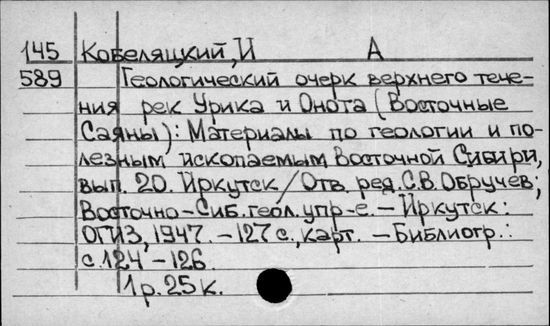 145 Кобеляцкий, И А
589 Геологический очерк верхнего тече-
ния рек Урика и Онота (Восточные
Саяны): Материалы по геологии и по-
лезным ископаемым Восточной Сибири,
вып. 20. Иркутск/Отв. ред. С.В. Обручев;
Восточно-Сиб. геол. упр-е. – Иркутск:
ОГИЗ, 1947. – 127 с., карт. – Библиогр.:
с. 124 – 126.
1 р. 25 к.